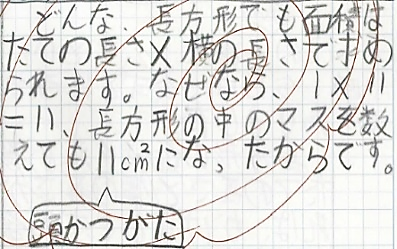 どんな長方形でも面積は
たての長さ×横の長さでもとめ
られます。なぜなら、1×11
=11、長方形の中のマスを数
えても11cm²になったからです。
頭かつがた